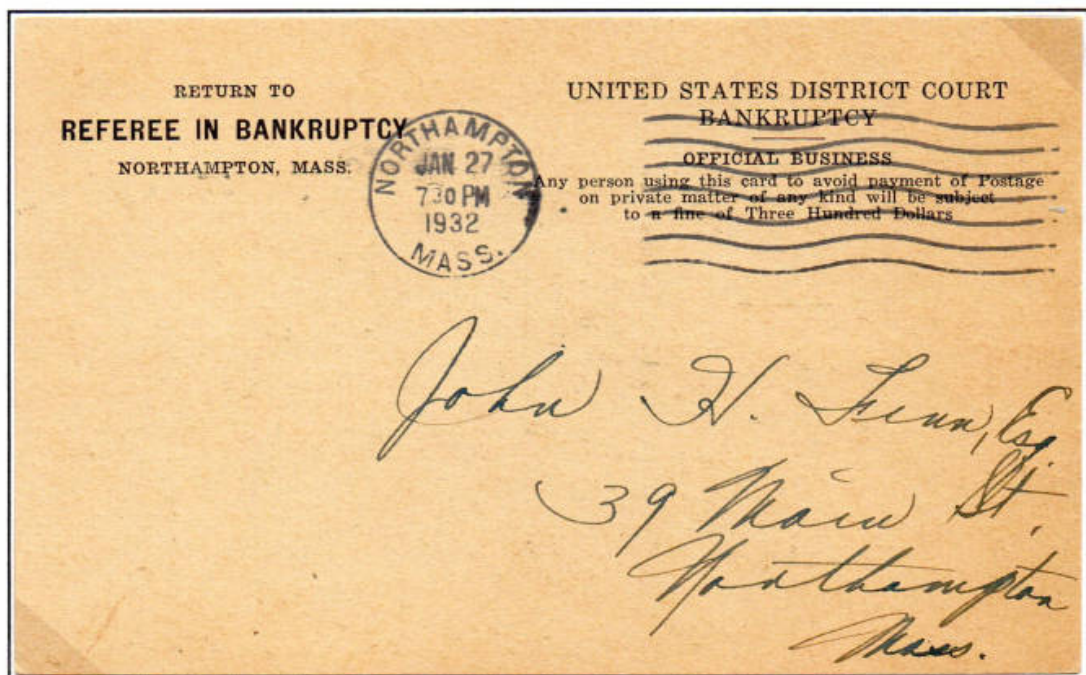 RETURN TO
REFEREE IN BANKRUPTCY
NORTHAMPTON, MASS.
NORTHAMPTON
JAN 27
730 PM
1932
MASS.
UNITED STATES DISTRICT COURT
BANKRUPTCY
OFFICIAL BUSINESS
Any person using this card to avoid payment of Postage
on private matter of any kind will be subject
to a fine of Three Hundred Dollars
John H. Finn, Esq.
39 Main St.
Northampton
Mass.